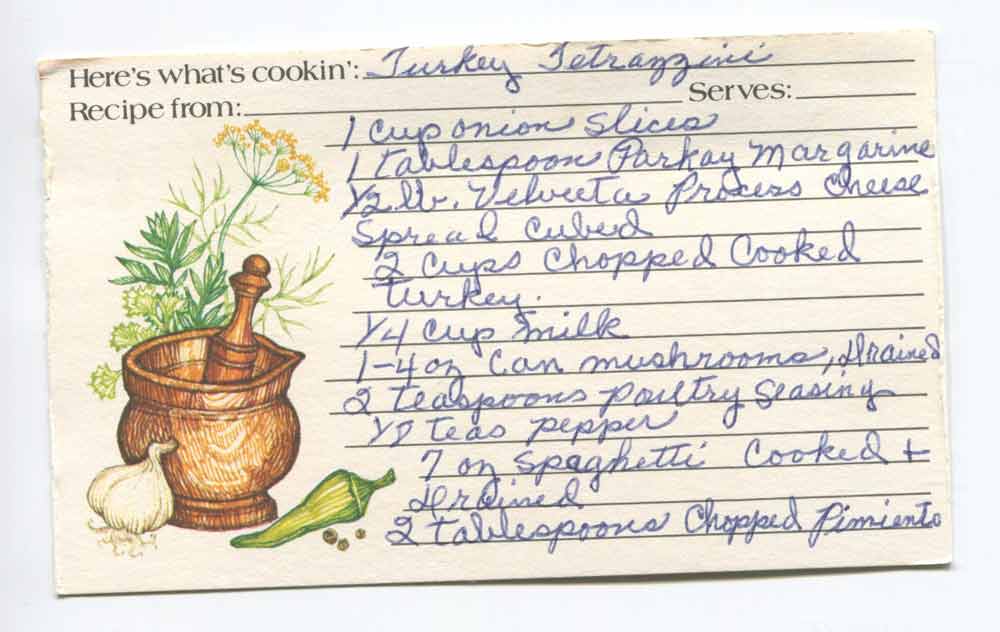 Here's what's cookin': Turkey Tetrazzini
Recipe from: Serves:
1 cup onion slices
1 tablespoon Parkay Margarine
1/2 lb. Velveeta Process Cheese
Spread cubed
2 Cups Chopped Cooked
turkey.
1/4 cup milk
1-4 oz Can mushrooms, drained
2 teaspoons poultry Seasing
1/8 teas pepper
7 oz spaghetti Cooked +
drained
2 tablespoons Chopped Pimiento